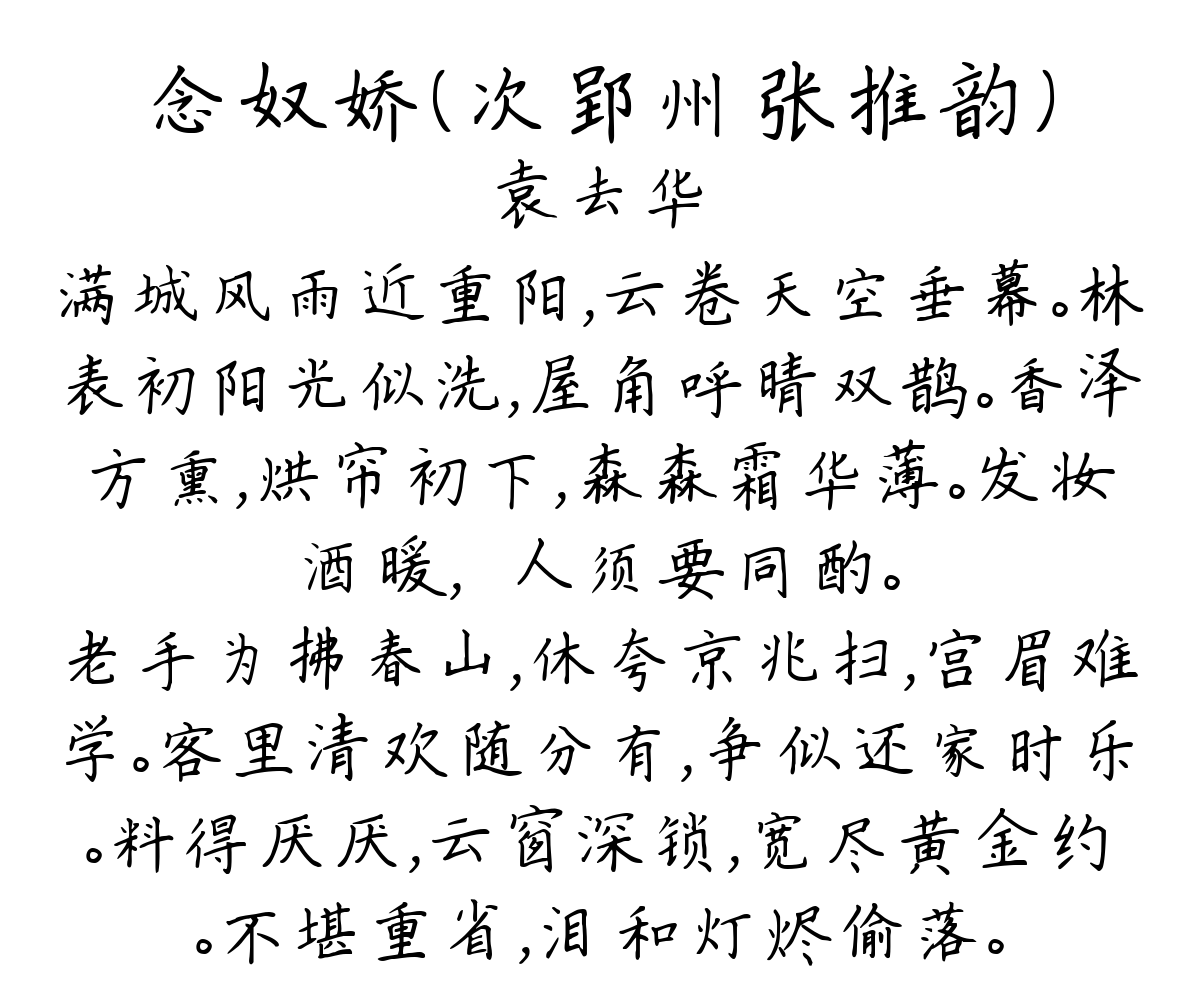 念奴娇(次郢州张推韵)
袁去华
满城风雨近重阳,云卷天空垂幕。林
表初阳光似洗,屋角呼晴双鹊。香泽
方熏,烘帘初下,森森霜华薄。发妆
酒暖,人须要同酌。
老手为拂春山,休夸京兆扫,宫眉难
学。客里清欢随分有,争似还家时乐
。料得厌厌,云窗深锁,宽尽黄金约
。不堪重省,泪和灯烬偷落。